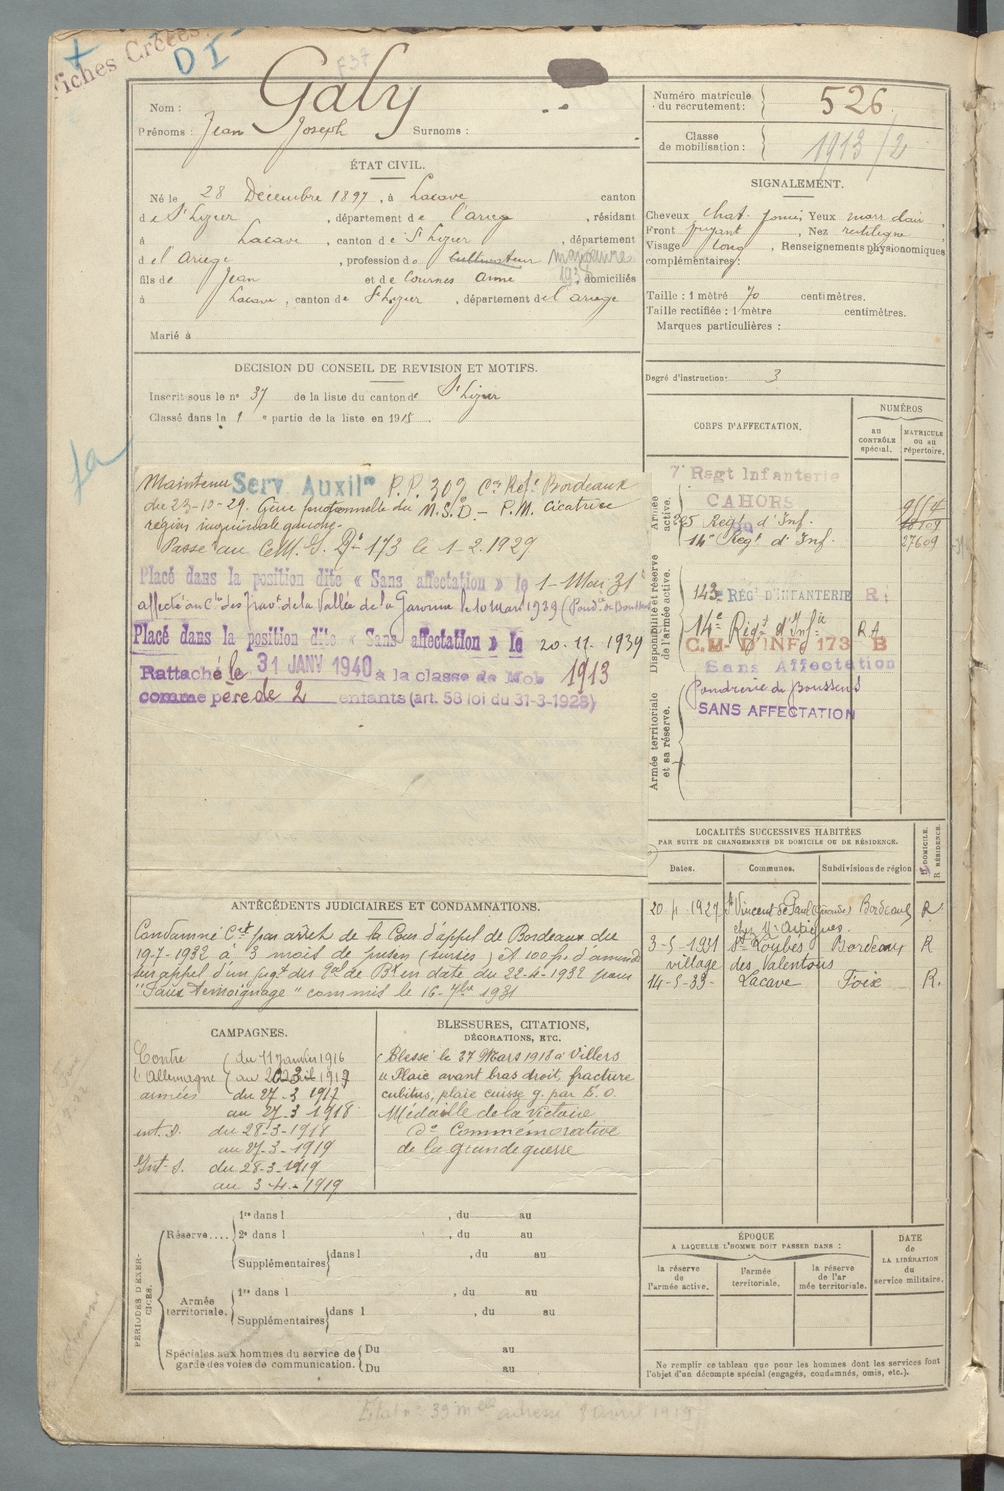 Fiches Créées
DI
Nom : Galy
Prénoms : Jean Joseph Surnoms :
Numéro matricule du recrutement : 526
Classe de mobilisation : 1913/2
ÉTAT CIVIL.
Né le 28 Décembre 1897, à Lacave canton
de St Lizier, département de l'ariege, résidant
à Lacave, canton de St Lizier, département
del'Ariege, profession de cultivateur manœuvre
193
fils de Jean et de Cournes Anne domiciliés
à Lacave, canton de St Lizier, département del'ariege
Marié à
SIGNALEMENT.
Cheveux chat. Yeux marr clair
Front fuyant, Nez rectiligne
Visage long, Renseignements physionomiques
complémentaires :
Taille : 1 mètre 70 centimètres.
Taille rectifiée : 1 mètre centimètres.
Marques particulières :
Degré d'instruction : 3
DECISION DU CONSEIL DE REVISION ET MOTIFS.
Inscrit sous le n° 37 de la liste du canton de St Lizier
Classé dans la 1 e partie de la liste en 1915
Maintenu Serv Auxilre P.P. 309 Con Refe Bordeaux
du 23-10-29. Gêne fonctionnelle du M.S.D. - P.M. Cicatrice
région inguinale gauche.
Passe au C.M. I. 173 le 1-2.1929
Placé dans la position dite « Sans affectation » le 1-Mai 31
affecté au Cle des Travx de la Vallée de la Garonne le 10 mars 1939 (Poudie de Boussens
Placé dans la position dite « Sans affectation » le 20.11.1939
Rattaché le 31 JANV 1940 à la classe de Mob 1913
comme père de 2 enfants (art. 58 loi du 31-3-1928)
CORPS D'AFFECTATION.
NUMÉROS
au CONTRÔLE spécial.
MATRICULE ou au répertoire.
Armée active.
7e Regt Infanterie
CAHORS
Regt d'Inf.
14e Regt d'Inf. 27609
Disponibilité et réserve de l'armée active.
143e RÉGt D'INFANTERIE R
14e Régt d'Infie R A
C.M. D'INF. 173 B
Sans Affectation
Armée territoriale et sa réserve.
Poudrerie de Boussens
SANS AFFECTATION
LOCALITÉS SUCCESSIVES HABITÉES
PAR SUITE DE CHANGEMENTS DE DOMICILE OU DE RÉSIDENCE.
Dates. Communes. Subdivisions de région D. DOMICILE. R. RÉSIDENCE.
20 4 1927 St Vincent de Paul (Gironde) Bordeaux R
chez Mr
3-5-1931 St Loubes Bordeaux R
village des Valentons
14-5-33- Lacave Foix R.
ANTÉCÉDENTS JUDICIAIRES ET CONDAMNATIONS.
Condamné Ct par arrêt de la Cour d'appel de Bordeaux du
19-7-1932 à 3 mois de prison (sursis) et 100 f. d'amende
sur appel d'un jugt du gal de Bx en date du 22-4-1932 pour
"Faux témoignage" commis le 16-7bre 1931
CAMPAGNES.
Contre l'Allemagne
du 11 janvier 1916
au 1917
armées du 27-3 1917
au 27-3 1918
int. d. du 28-3-1918
au 27-3-1919
Int-s. du 28-3-1919
au 3-4-1919
BLESSURES, CITATIONS,
DÉCORATIONS, ETC.
Blessé le 27 Mars 1918 à Villers
"Plaie avant bras droit, fracture
cubitus, plaie cuisse g. par E.O.
Médaille de la victoire
do Commémorative
de la grande guerre
PÉRIODES D'EXERCICES.
Réserve....
1re dans l , du au
2e dans l , du au
Supplémentaires dans l , du au
Armée territoriale.
1re dans l , du au
Supplémentaires dans l , du au
Spéciales aux hommes du service de garde des voies de communication.
Du au
Du au
ÉPOQUE
A LAQUELLE L'HOMME DOIT PASSER DANS :
la réserve de l'armée active.
l'armée territoriale.
la réserve de l'armée territoriale.
DATE de LA LIBÉRATION du service militaire.
Ne remplir ce tableau que pour les hommes dont les services font
l'objet d'un décompte spécial (engagés, condamnés, omis, etc.).
adressé 8 avril 1919